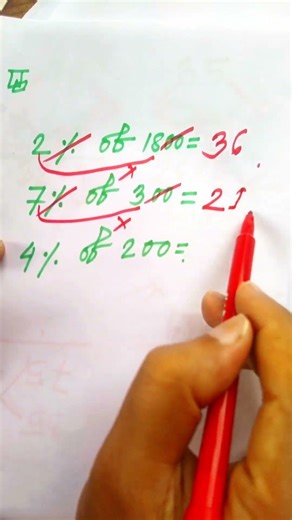 2% of 1800=36
7% of 300=21
4% of 200=